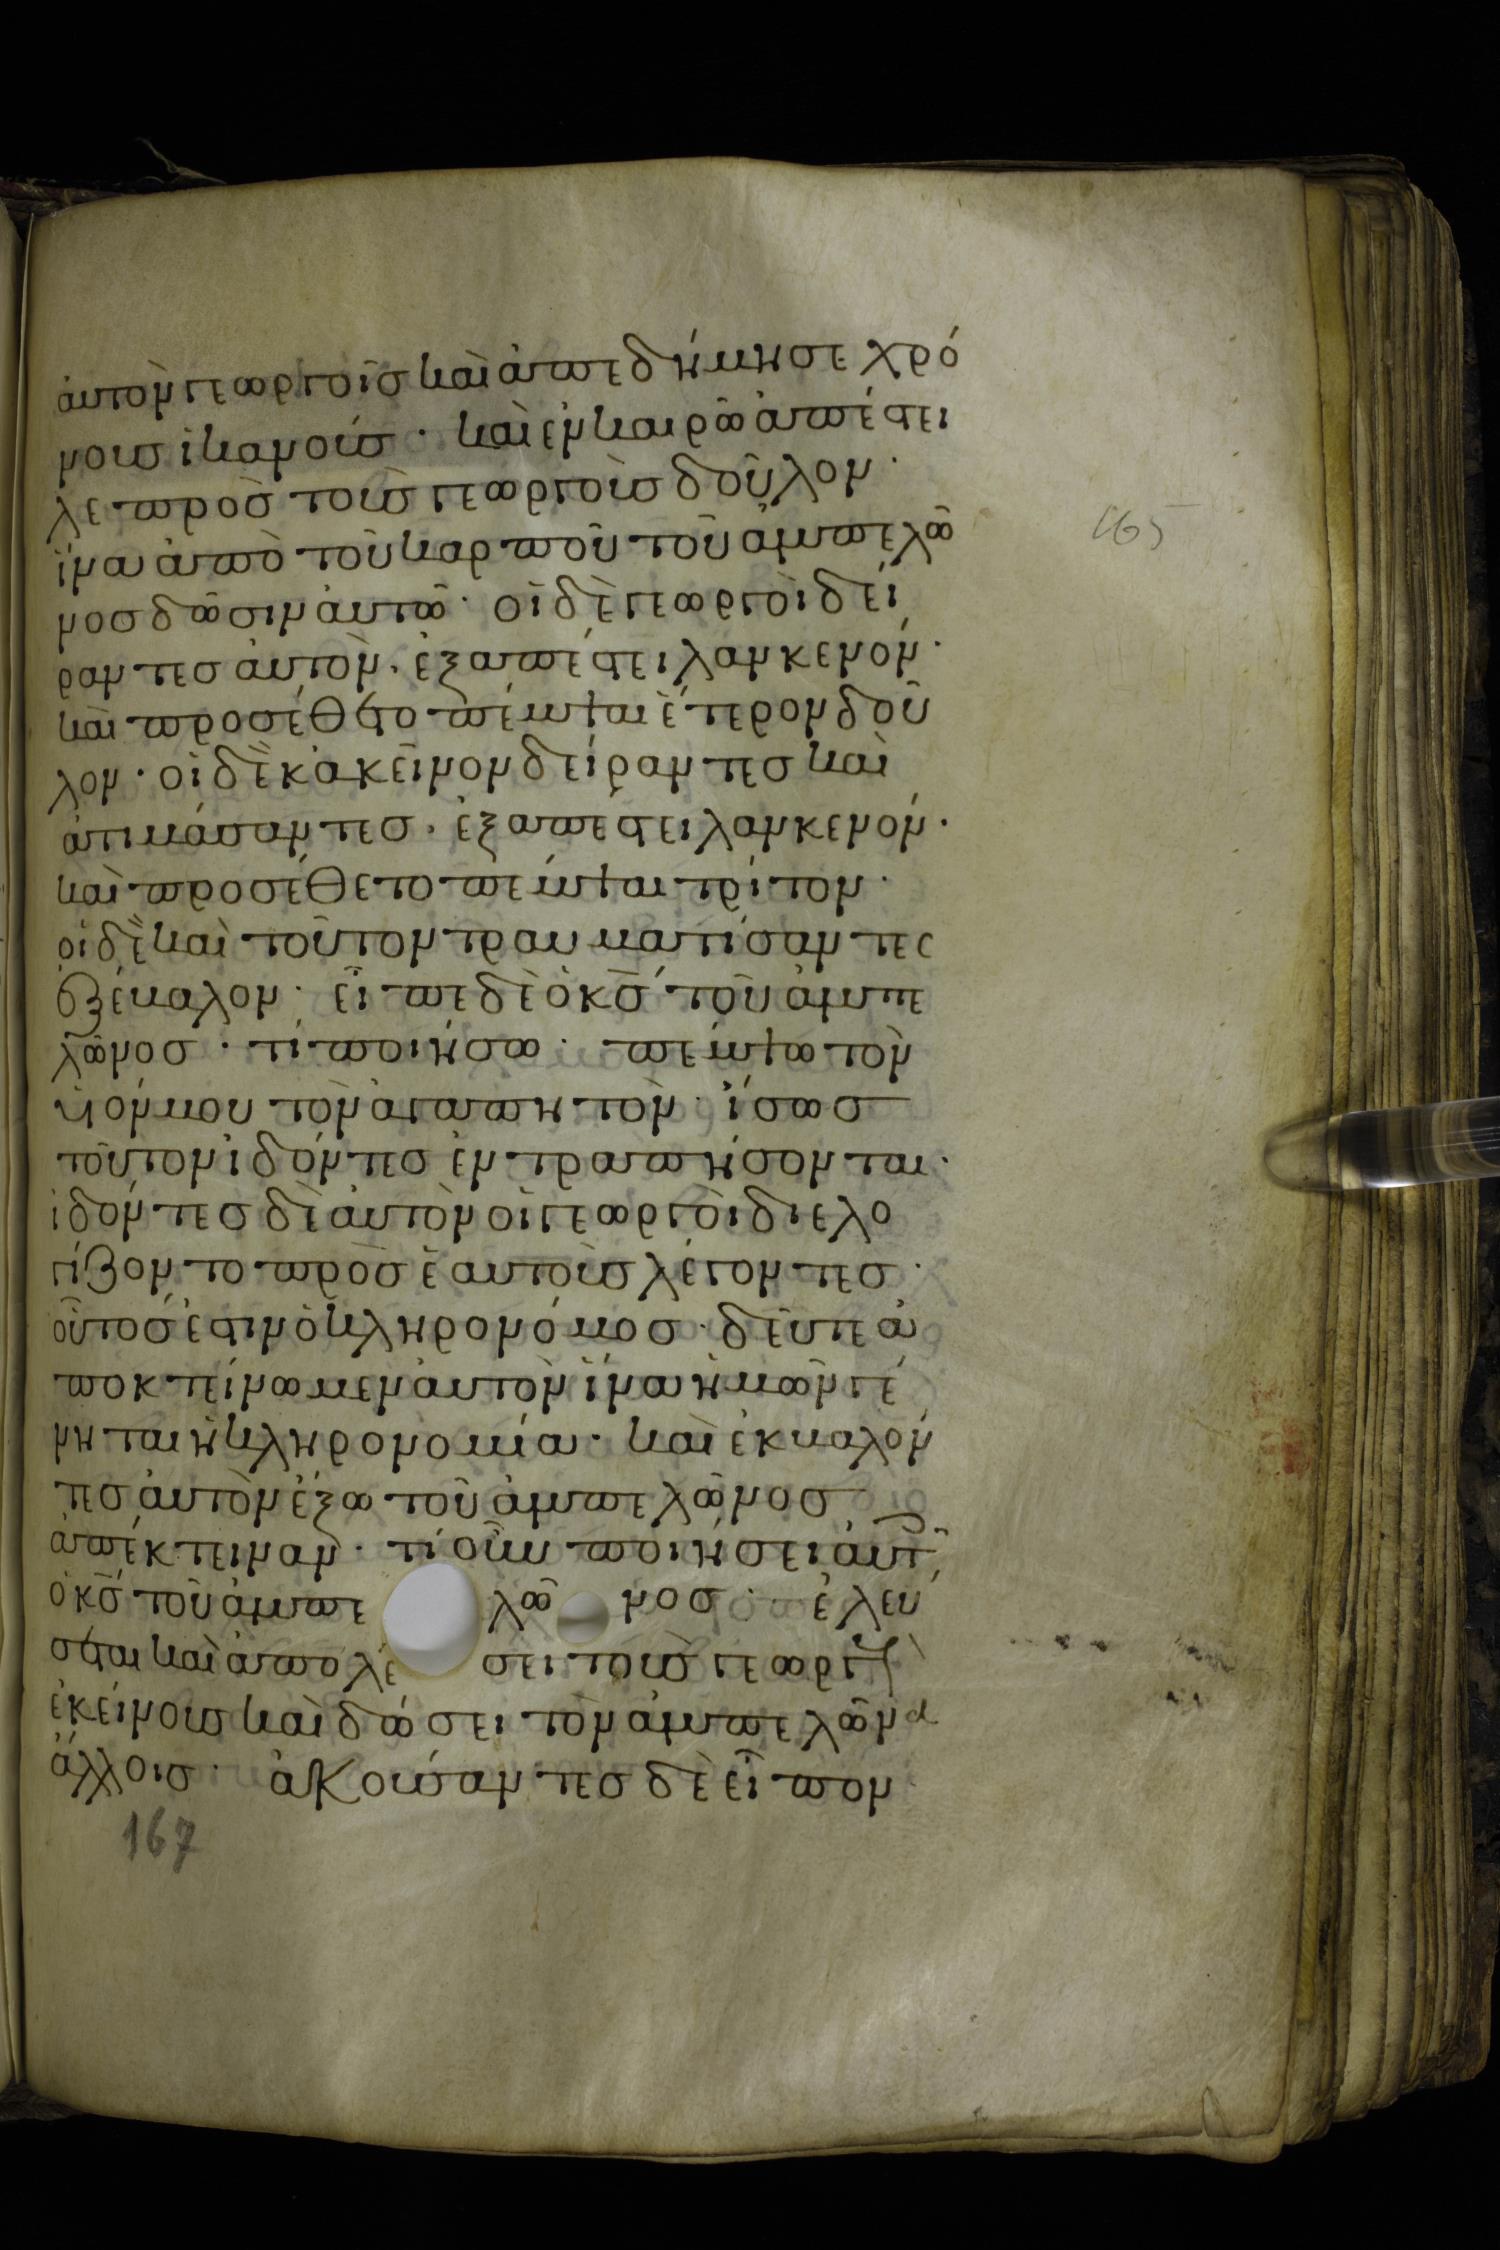 αὐτὸν γεωργοῖς καὶ ἀπεδήμησε χρό
νους ἱκανούς · καὶ ἐν καιρῶ ἀπέστει
λε πρὸς τοὺς γεωργοὺς δοῦλον ·
ἵνα ἀπὸ τοῦ καρποῦ τοῦ ἀμπελῶ
νος δῶσιν αὐτῶ · οἱ δὲ γεωργοὶ δεί
ραντες αὐτὸν · ἐξαπέστειλαν κενόν ·
καὶ προσέθετο πέμψαι ἕτερον δοῦ
λον · οἱ δὲ κἀκεῖνον δείραντες καὶ
ἀτιμάσαντες · ἐξαπέστειλαν κενόν ·
καὶ προσέθετο πέμψαι τρίτον ·
οἱ δὲ καὶ τοῦτον τραυματίσαντες
ἐξέβαλον · εἶπε δὲ ὁ κ̅ς̅ τοῦ ἀμπε
λῶνος · τί ποιήσω · πέμψω τὸν
υἱόν μου τὸν ἀγαπητὸν · ἴσως
τοῦτον ἰδόντες ἐντραπήσονται ·
ἰδόντες δὲ αὐτὸν οἱ γεωργοὶ διελο
γίζοντο πρὸς ἑαυτοὺς λέγοντες ·
οὗτός ἐστιν ὁ κληρονόμος · δεῦτε ἀ
ποκτείνωμεν αὐτὸν ἵνα ἡμῶν γέ
νηται ἡ κληρονομία · καὶ ἐκβαλόν
τες αὐτὸν ἔξω τοῦ ἀμπελῶνος
ἀπέκτειναν · τί οὖν ποιήσει αὐτοῖς
ὁ κ̅ς̅ τοῦ ἀμπελῶνος · ἐλεύ
σεται καὶ ἀπολέσει τοὺς γεωργοὺς
ἐκείνους καὶ δώσει τὸν ἀμπελῶνα
ἄλλοις · ἀκούσαντες δὲ εἶπον
165
167